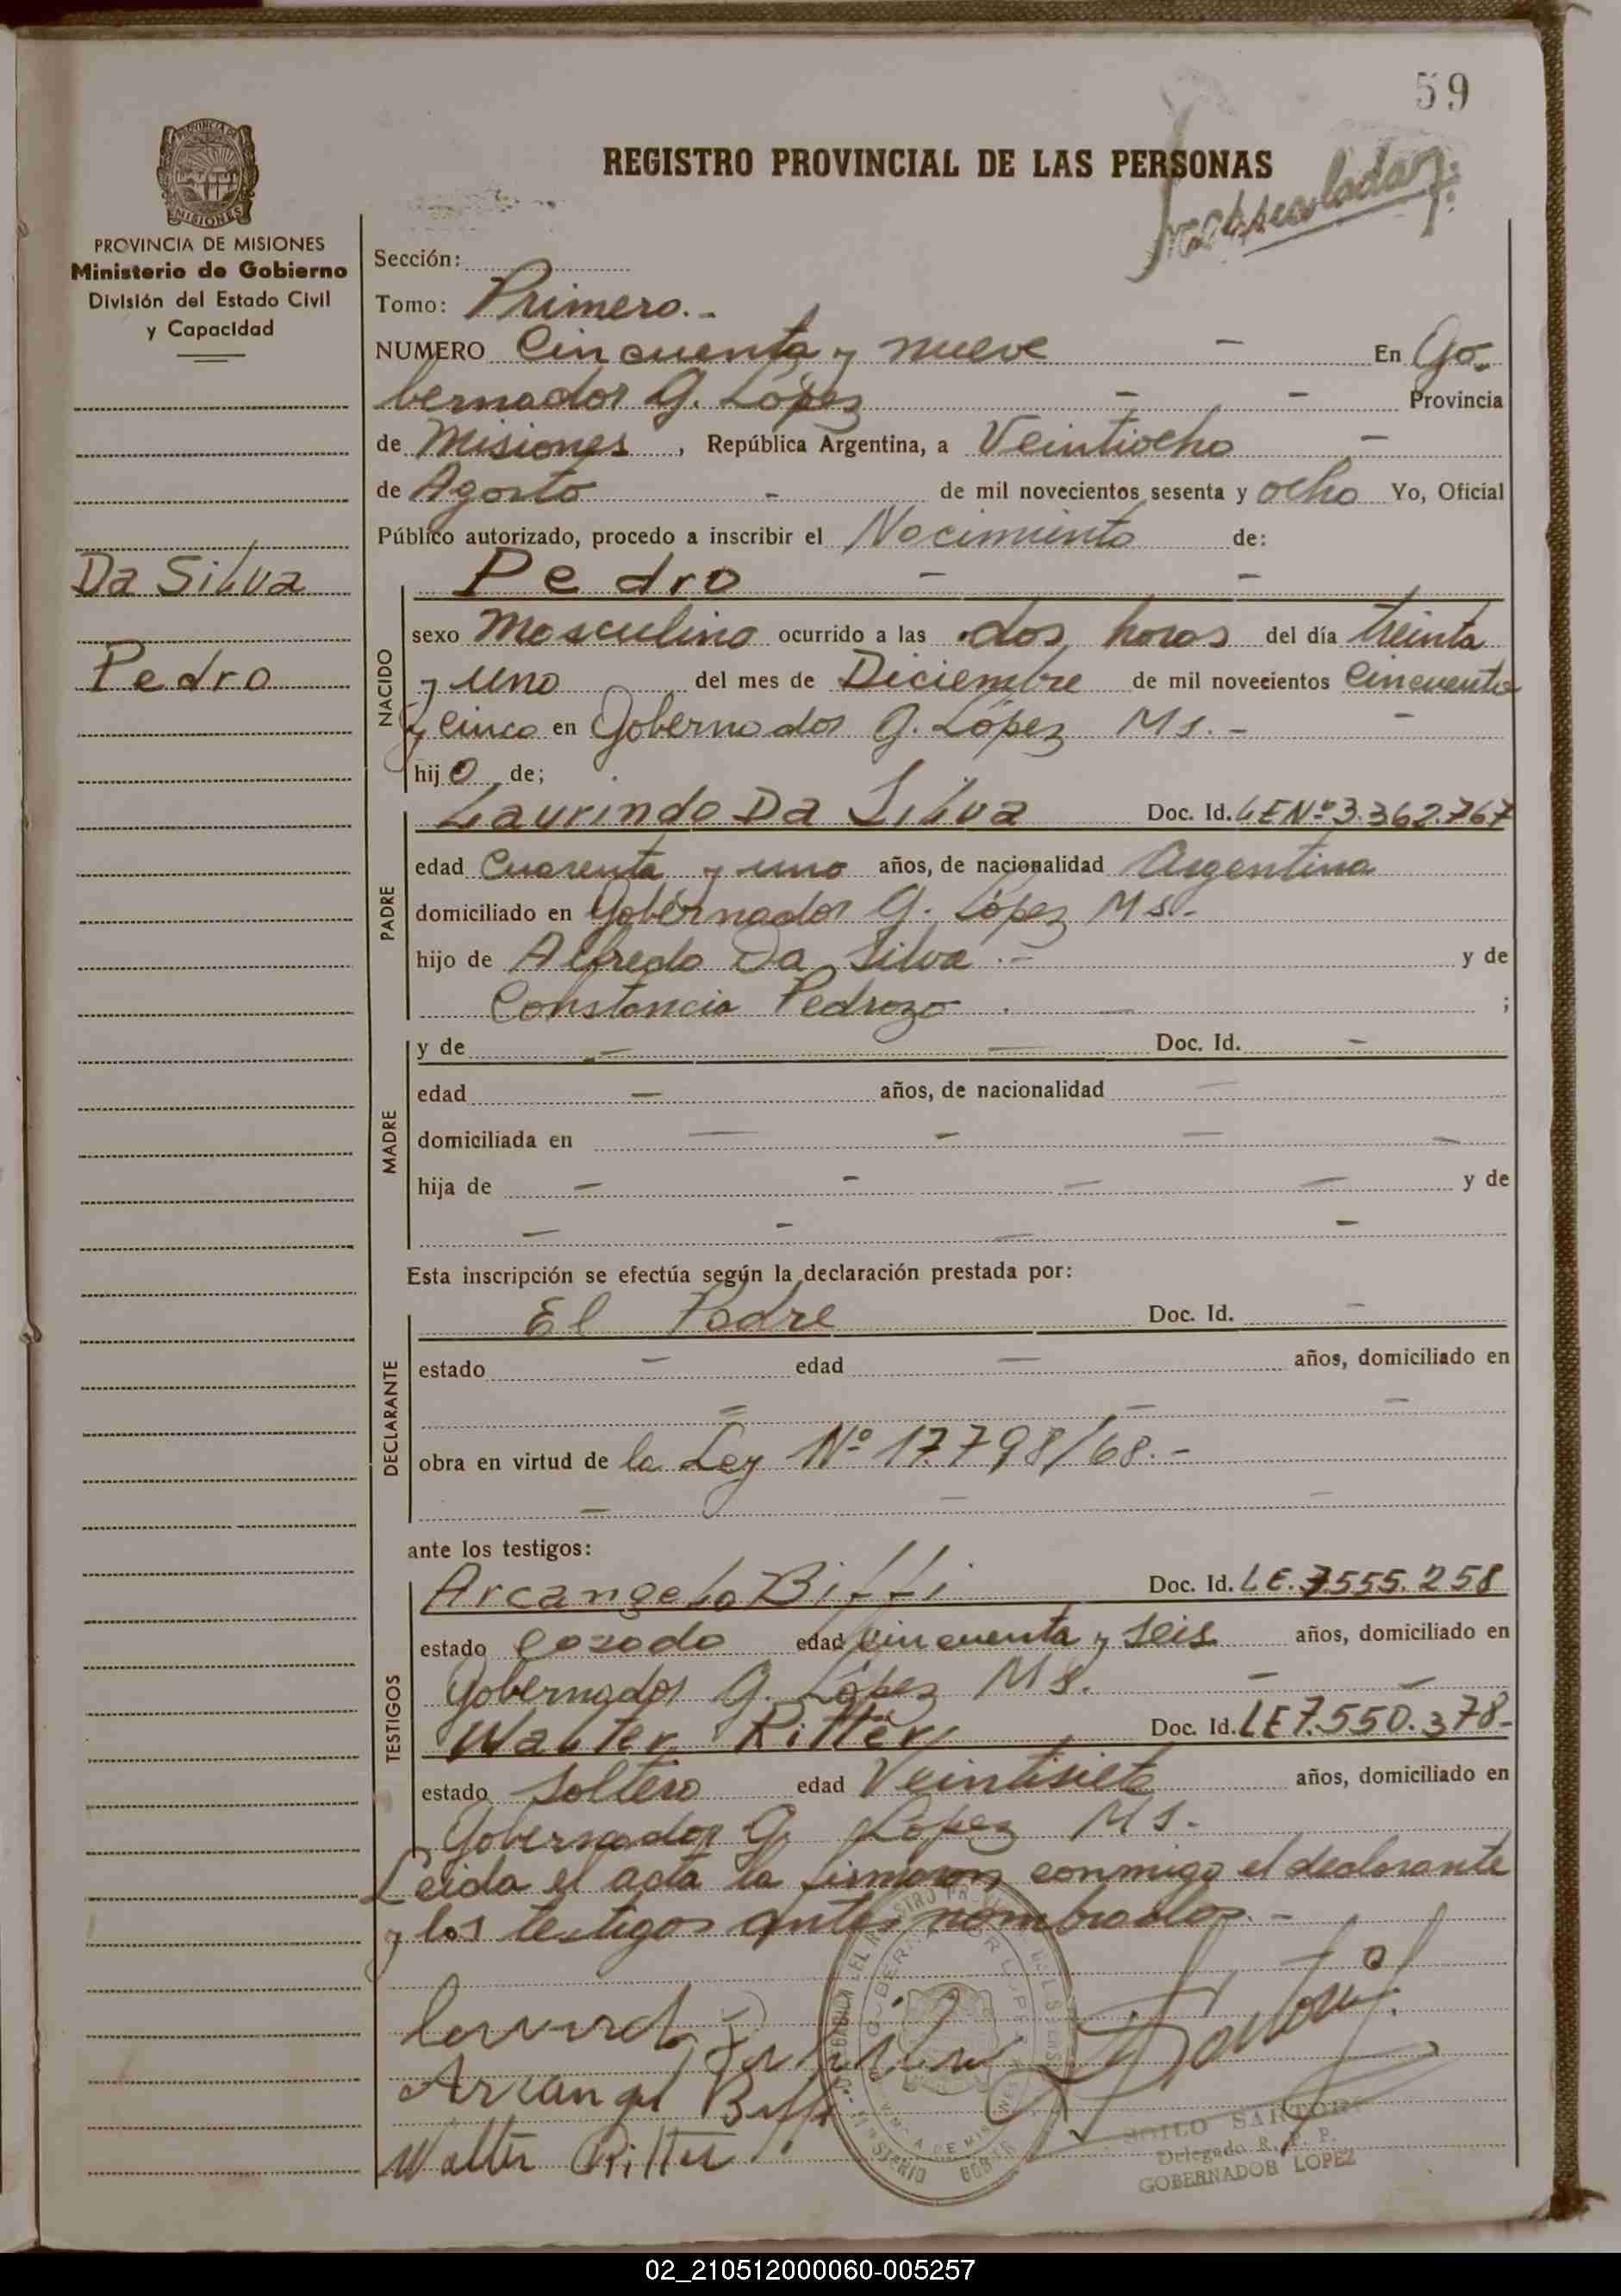 59
REGISTRO PROVINCIAL DE LAS PERSONAS
PROVINCIA DE MISIONES
Ministerio de Gobierno
División del Estado Civil
y Capacidad
Sección:
Tomo: Primero.-
NUMERO Cincuenta y nueve - En Go-
bernador G. López - - Provincia
de Misiones, República Argentina, a Veintiocho -
de Agosto - de mil novecientos sesenta y ocho Yo, Oficial
Público autorizado, procedo a inscribir el Nacimiento de:
Da Silva
Pedro
NACIDO
Pedro - -
sexo Masculino ocurrido a las dos horas del día treinta
y uno del mes de Diciembre de mil novecientos Cincuenta
y cinco en Gobernador G. López Ms. - -
hijo de;
PADRE
Laurindo Da Silva Doc. Id. LE Nº 3.362.767
edad Cuarenta y uno años, de nacionalidad Argentina
domiciliado en Gobernador G. López Ms.-
hijo de Alfredo Da Silva.- y de
Constancia Pedrozo . - ;
MADRE
y de - - Doc. Id. -
edad - años, de nacionalidad -
domiciliada en - - - -
hija de - - - - y de
- - - -
Esta inscripción se efectúa según la declaración prestada por:
DECLARANTE
El Padre Doc. Id. -
estado - edad - años, domiciliado en
= - -
obra en virtud de la Ley Nº 17.798/68.-
- - -
ante los testigos:
TESTIGOS
Arcangelo Biffi Doc. Id. LE. 7555.258
estado Casado edad Cincuenta y seis años, domiciliado en
Gobernador G. López Ms. - -
Walter Ritter Doc. Id. LE 7.550.378-
estado Soltero edad Veintisiete años, domiciliado en
Gobernador G. López Ms.
Leida el acta la firmaron conmigo el declarante
y los testigos antes nombrados.-
Arcangel Biffi
Walter Ritter
SARTORI
Delegado R. P. P.
GOBERNADOR LOPEZ
02_210512000060-005257